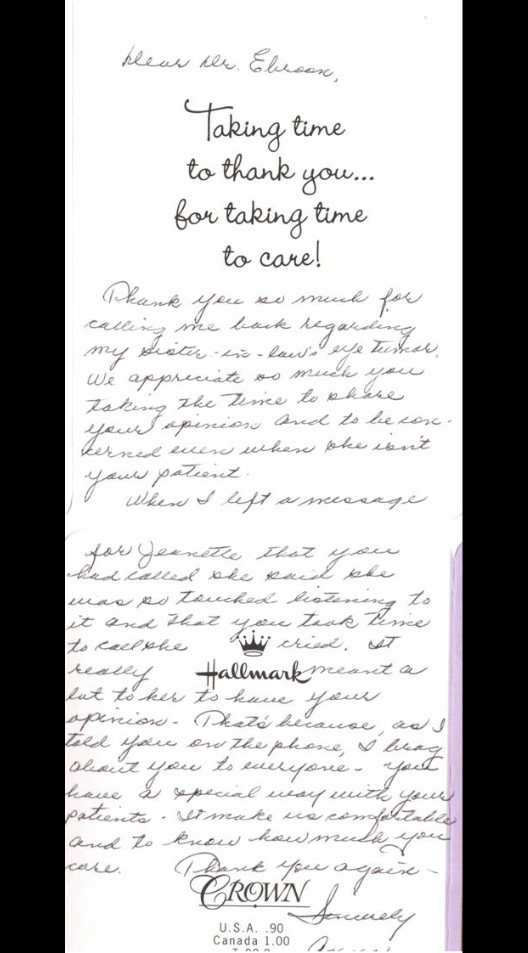 Dear Dr. Ebroon,
Taking time
to thank you...
for taking time
to care!
Thank you so much for
calling me back regarding
my sister-in-law's eye tumor.
We appreciate so much you
taking the time to share
your opinion and to be con-
cerned even when she isn't
your patient.
When I left a message
for Jeanette that you
had called she said she
was so touched listening to
it and that you took time
to call she cried. It
really meant a
Hallmark
lot to her to have your
opinion - That's because, as I
told you on the phone, I brag
about you to everyone - you
have a special way with your
patients - It make us comfortable
and to know how much you
care. Thank you again -
CROWN
Sincerely
U.S.A. .90
Canada 1.00